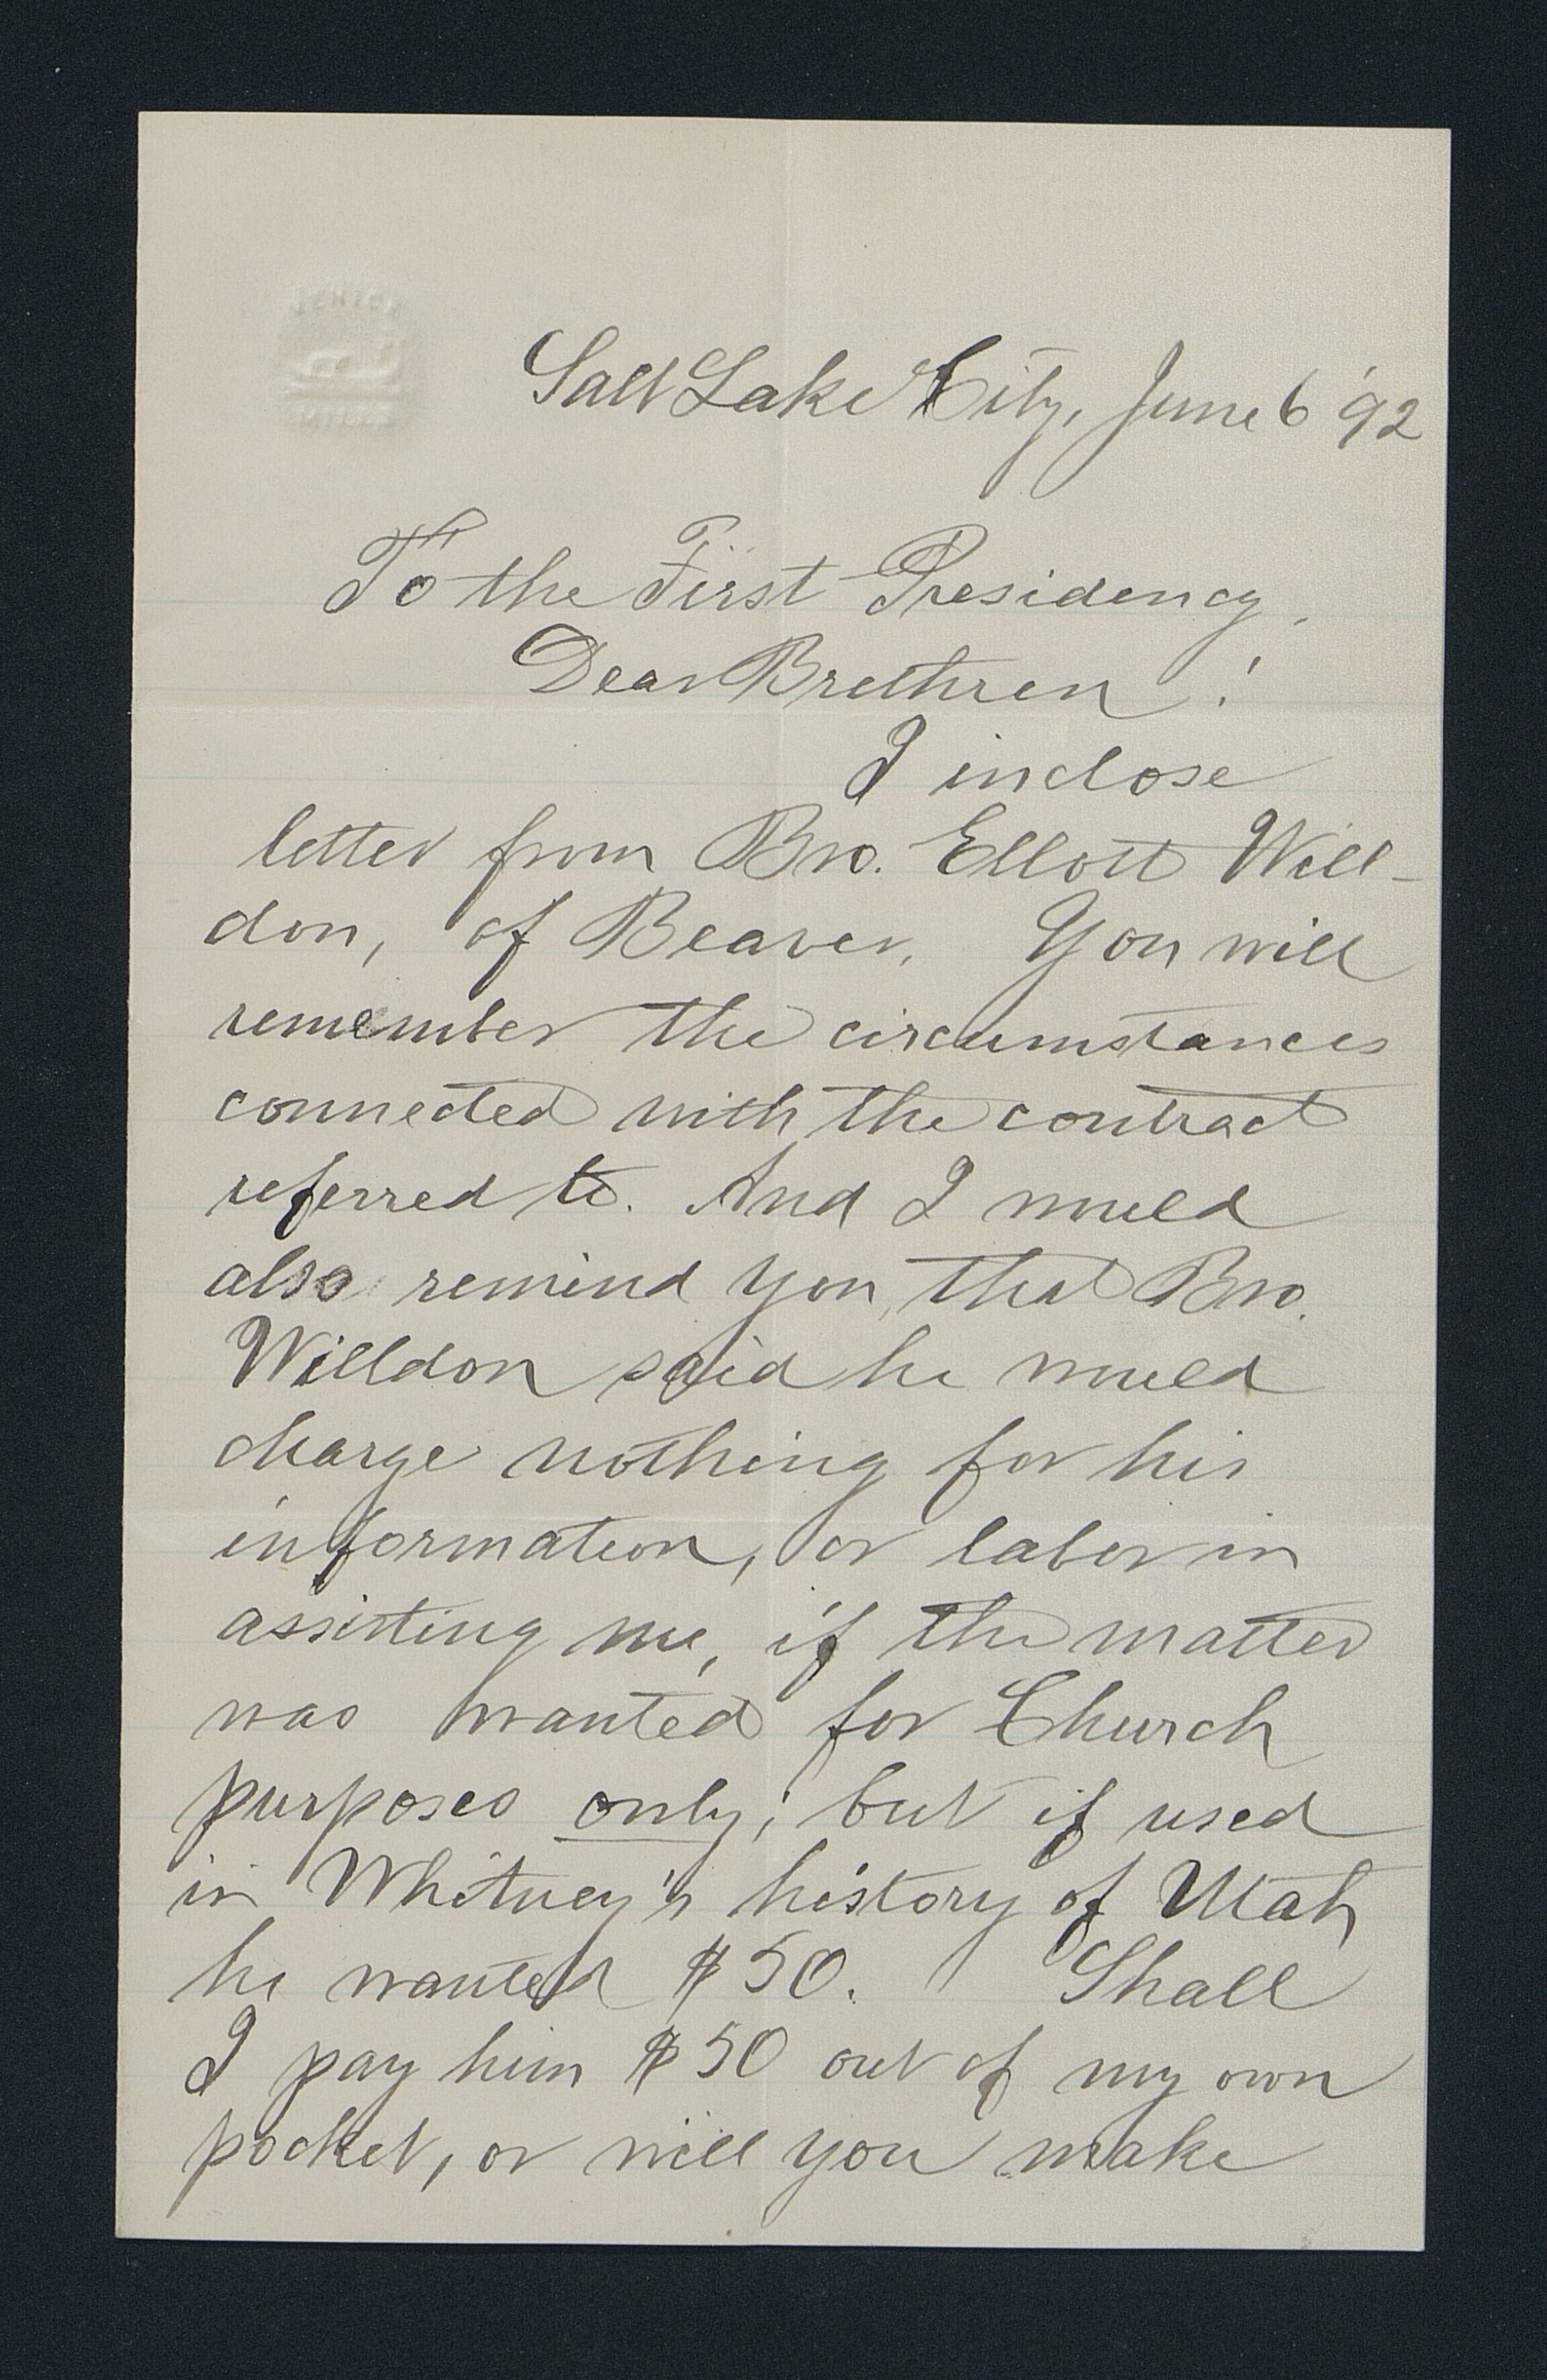 Salt Lake City, June 6 '92
To the First Presidency,
Dear Brethren!
I inclose
letter from Bro. Ellott Will-
don, of Beaver. You will
remember the circumstances
connected with the contract
referred to. And I would
also remind you that Bro.
Willdon said he would
charge nothing for his
information, or labor in
assisting me, if the matter
was wanted for Church
purposes only; but if used
in Whitney's history of Utah
he wanted $50. Shall
I pay him $50 out of my own
pocket, or will you make